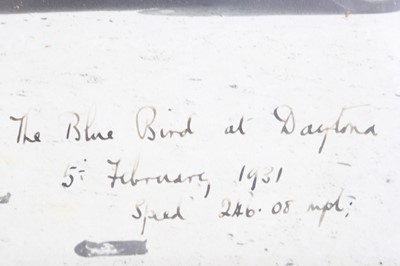 The Blue Bird at Daytona
5= February, 1931
Speed 246.08 mph;